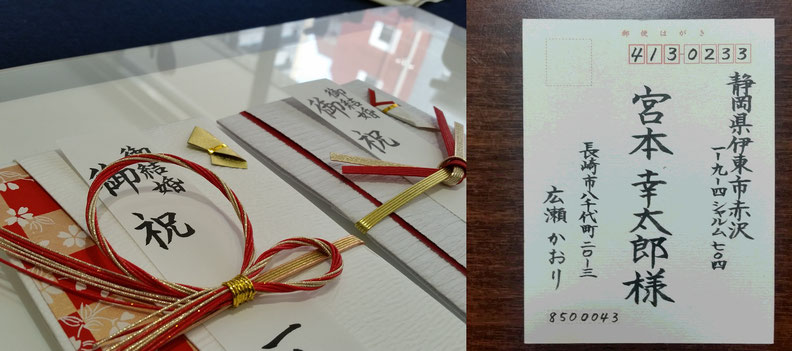 御結婚
御祝
御結婚
御祝
郵便はがき
413-0233
静岡県伊東市赤沢
一-九-四 シャルム七〇四
宮本 幸太郎様
長崎市八千代町二〇-三
広瀬 かおり
8500043